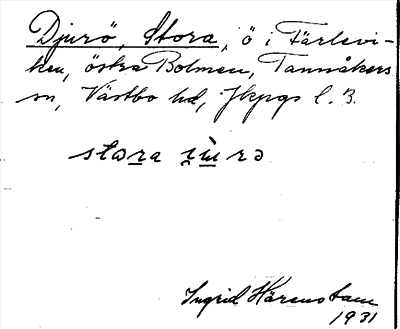 Djurö, Stora, ö i Färlevi-
ken, östra Bolmen, Tannåkers
sn, Västbo hd, Jkpgs l. 3.
stora jùrə
Ingrid Härenstam
1931